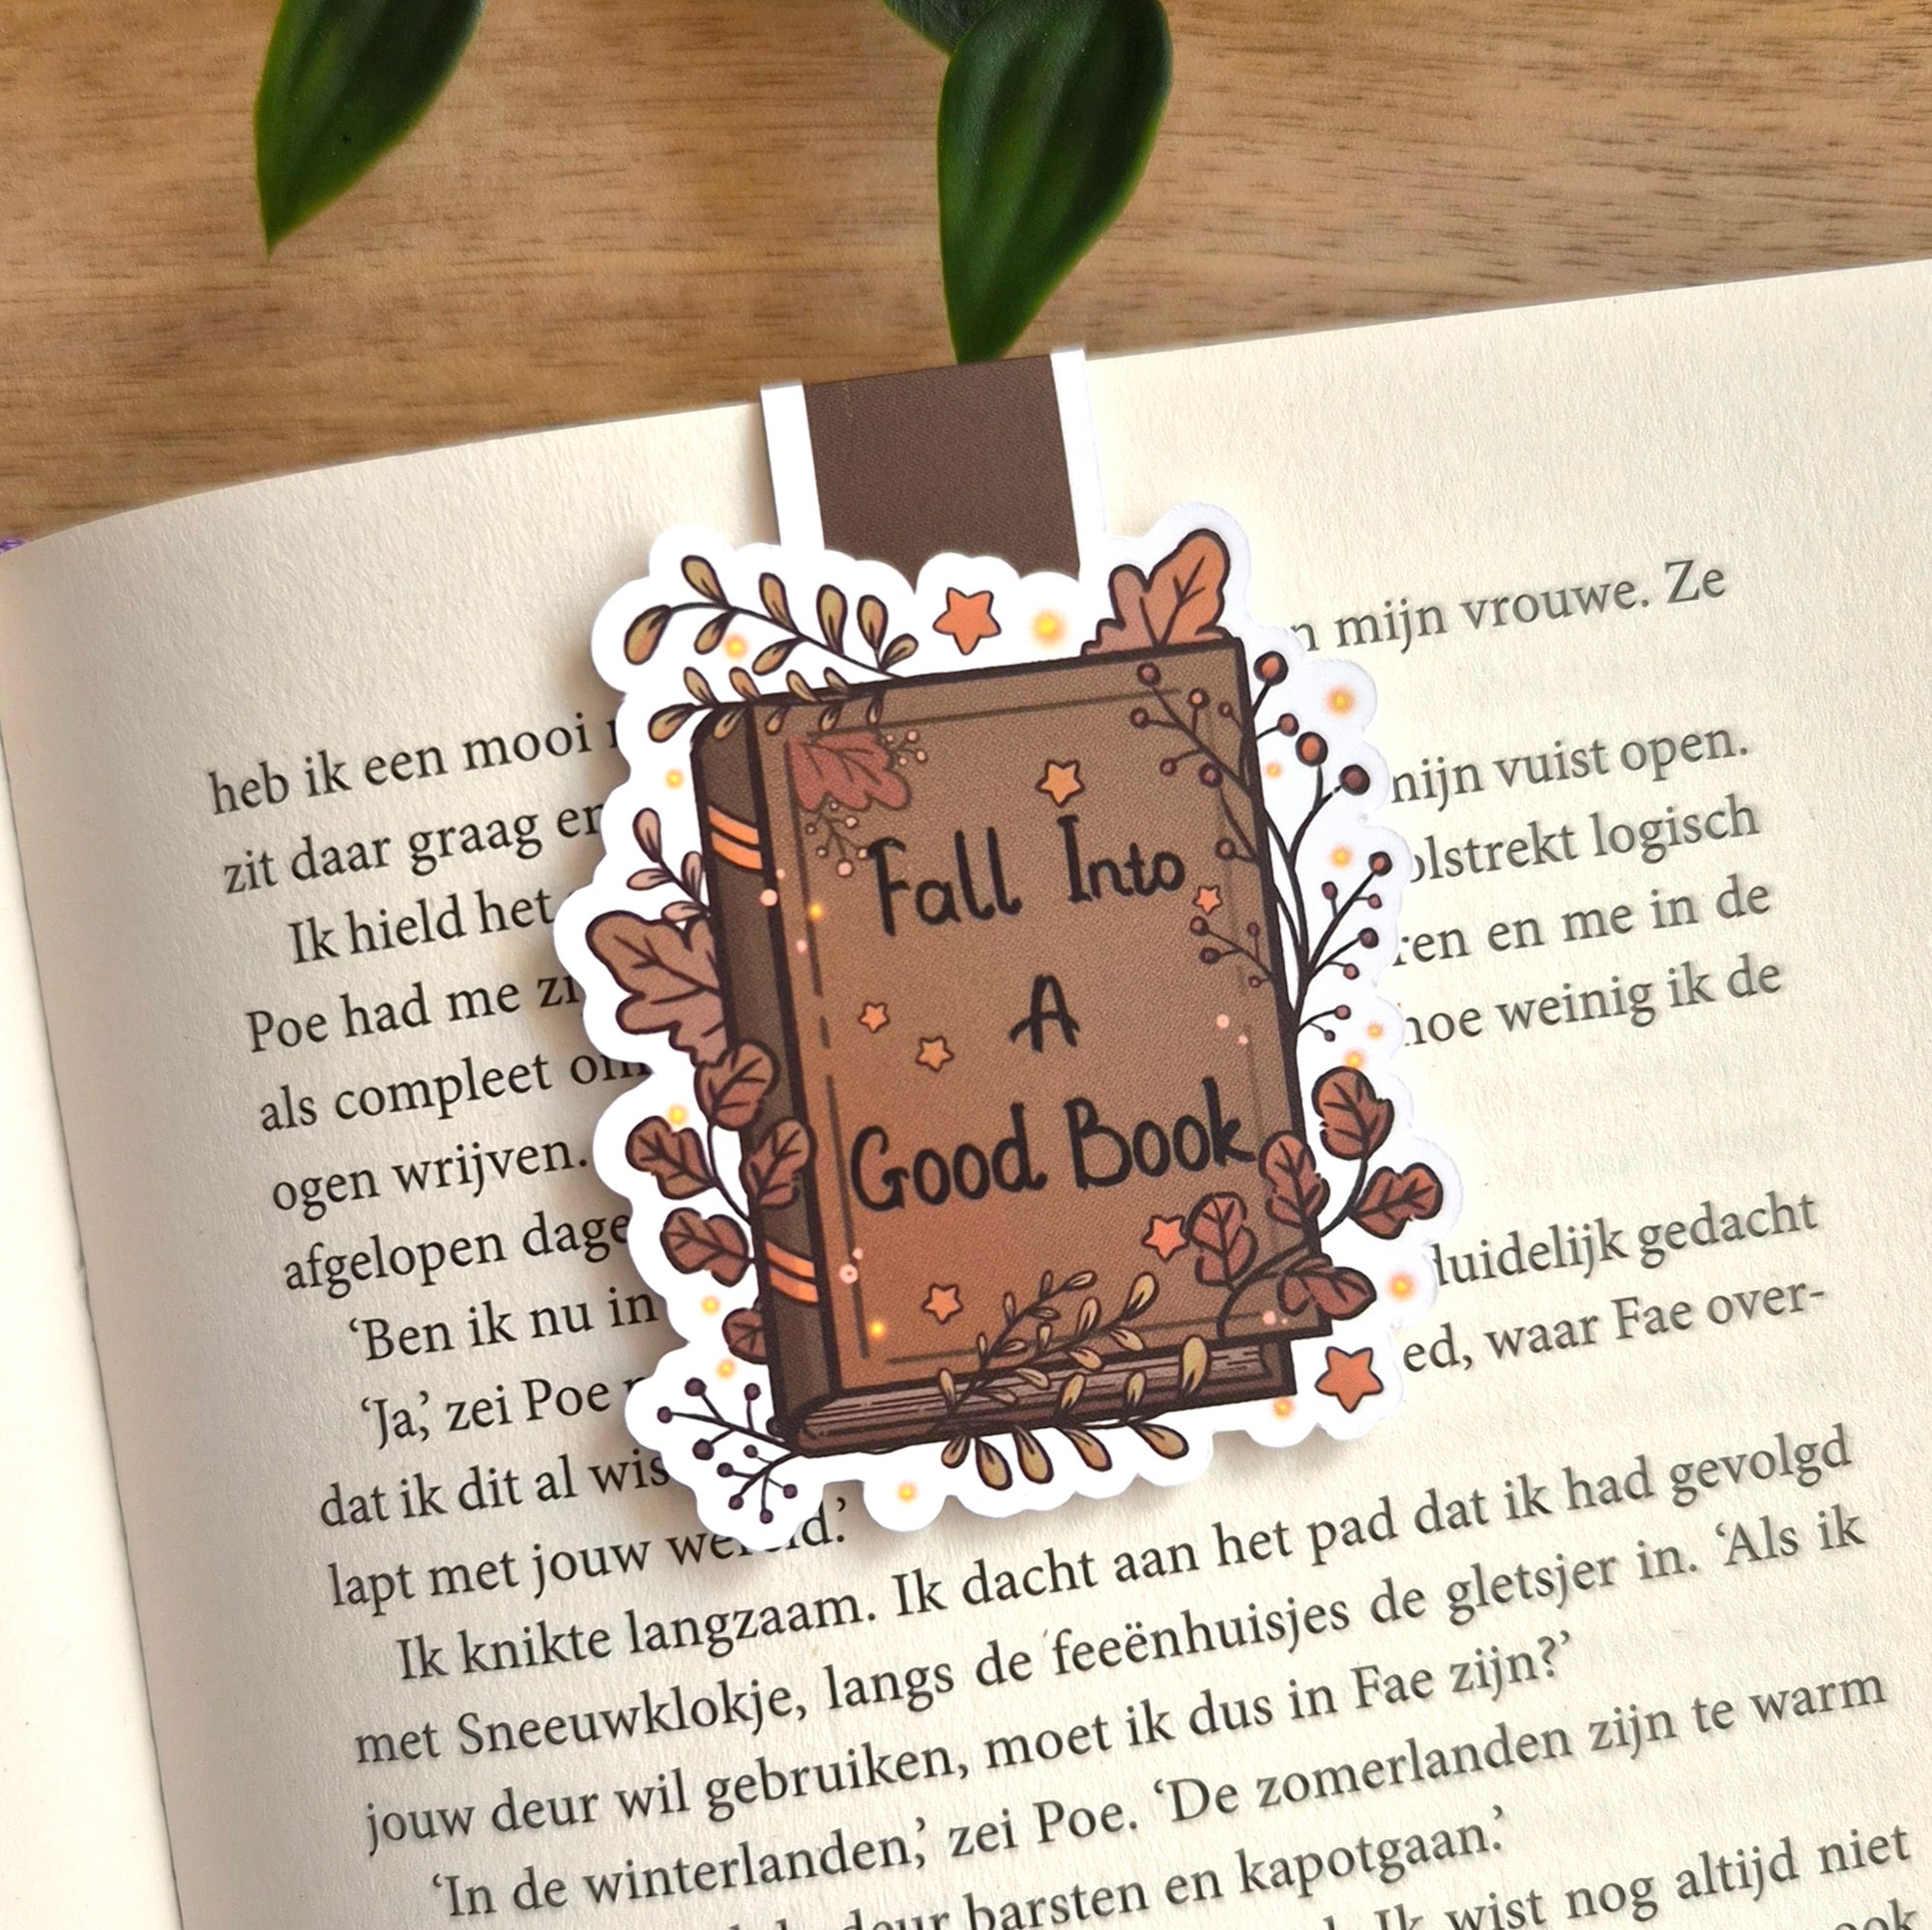 n mijn vrouwe. Ze
heb ik een mooi
nijn vuist open.
zit daar graag en
olstrekt logisch
Ik hield het
ren en me in de
Poe had me
hoe weinig ik de
als compleet
ogen wrijven.
luidelijk gedacht
afgelopen dage
ed, waar Fae over-
'Ben ik nu in
'Ja,' zei Poe
dat ik dit al wis
lapt met jouw wereld.'
Ik knikte langzaam. Ik dacht aan het pad dat ik had gevolgd
met Sneeuwklokje, langs de feeënhuisjes de gletsjer in. 'Als ik
jouw deur wil gebruiken, moet ik dus in Fae zijn?'
'In de winterlanden,' zei Poe. 'De zomerlanden zijn te warm
deur barsten en kapotgaan.'
Ik wist nog altijd niet
Fall Into
A
Good Book